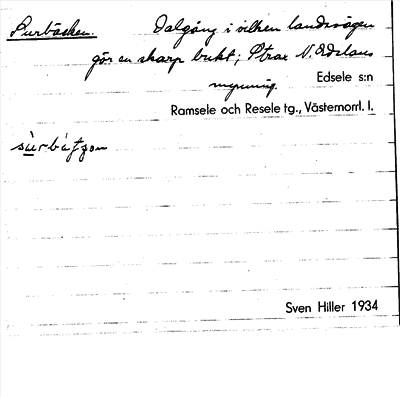 Surbäcken. Dalgång i vilken landsvägen
gör en skarp bukt; Strax N. Edslans
mynning. Edsele s:n
Ramsele och Resele tg., Västernorrl. l.
Sven Hiller 1934